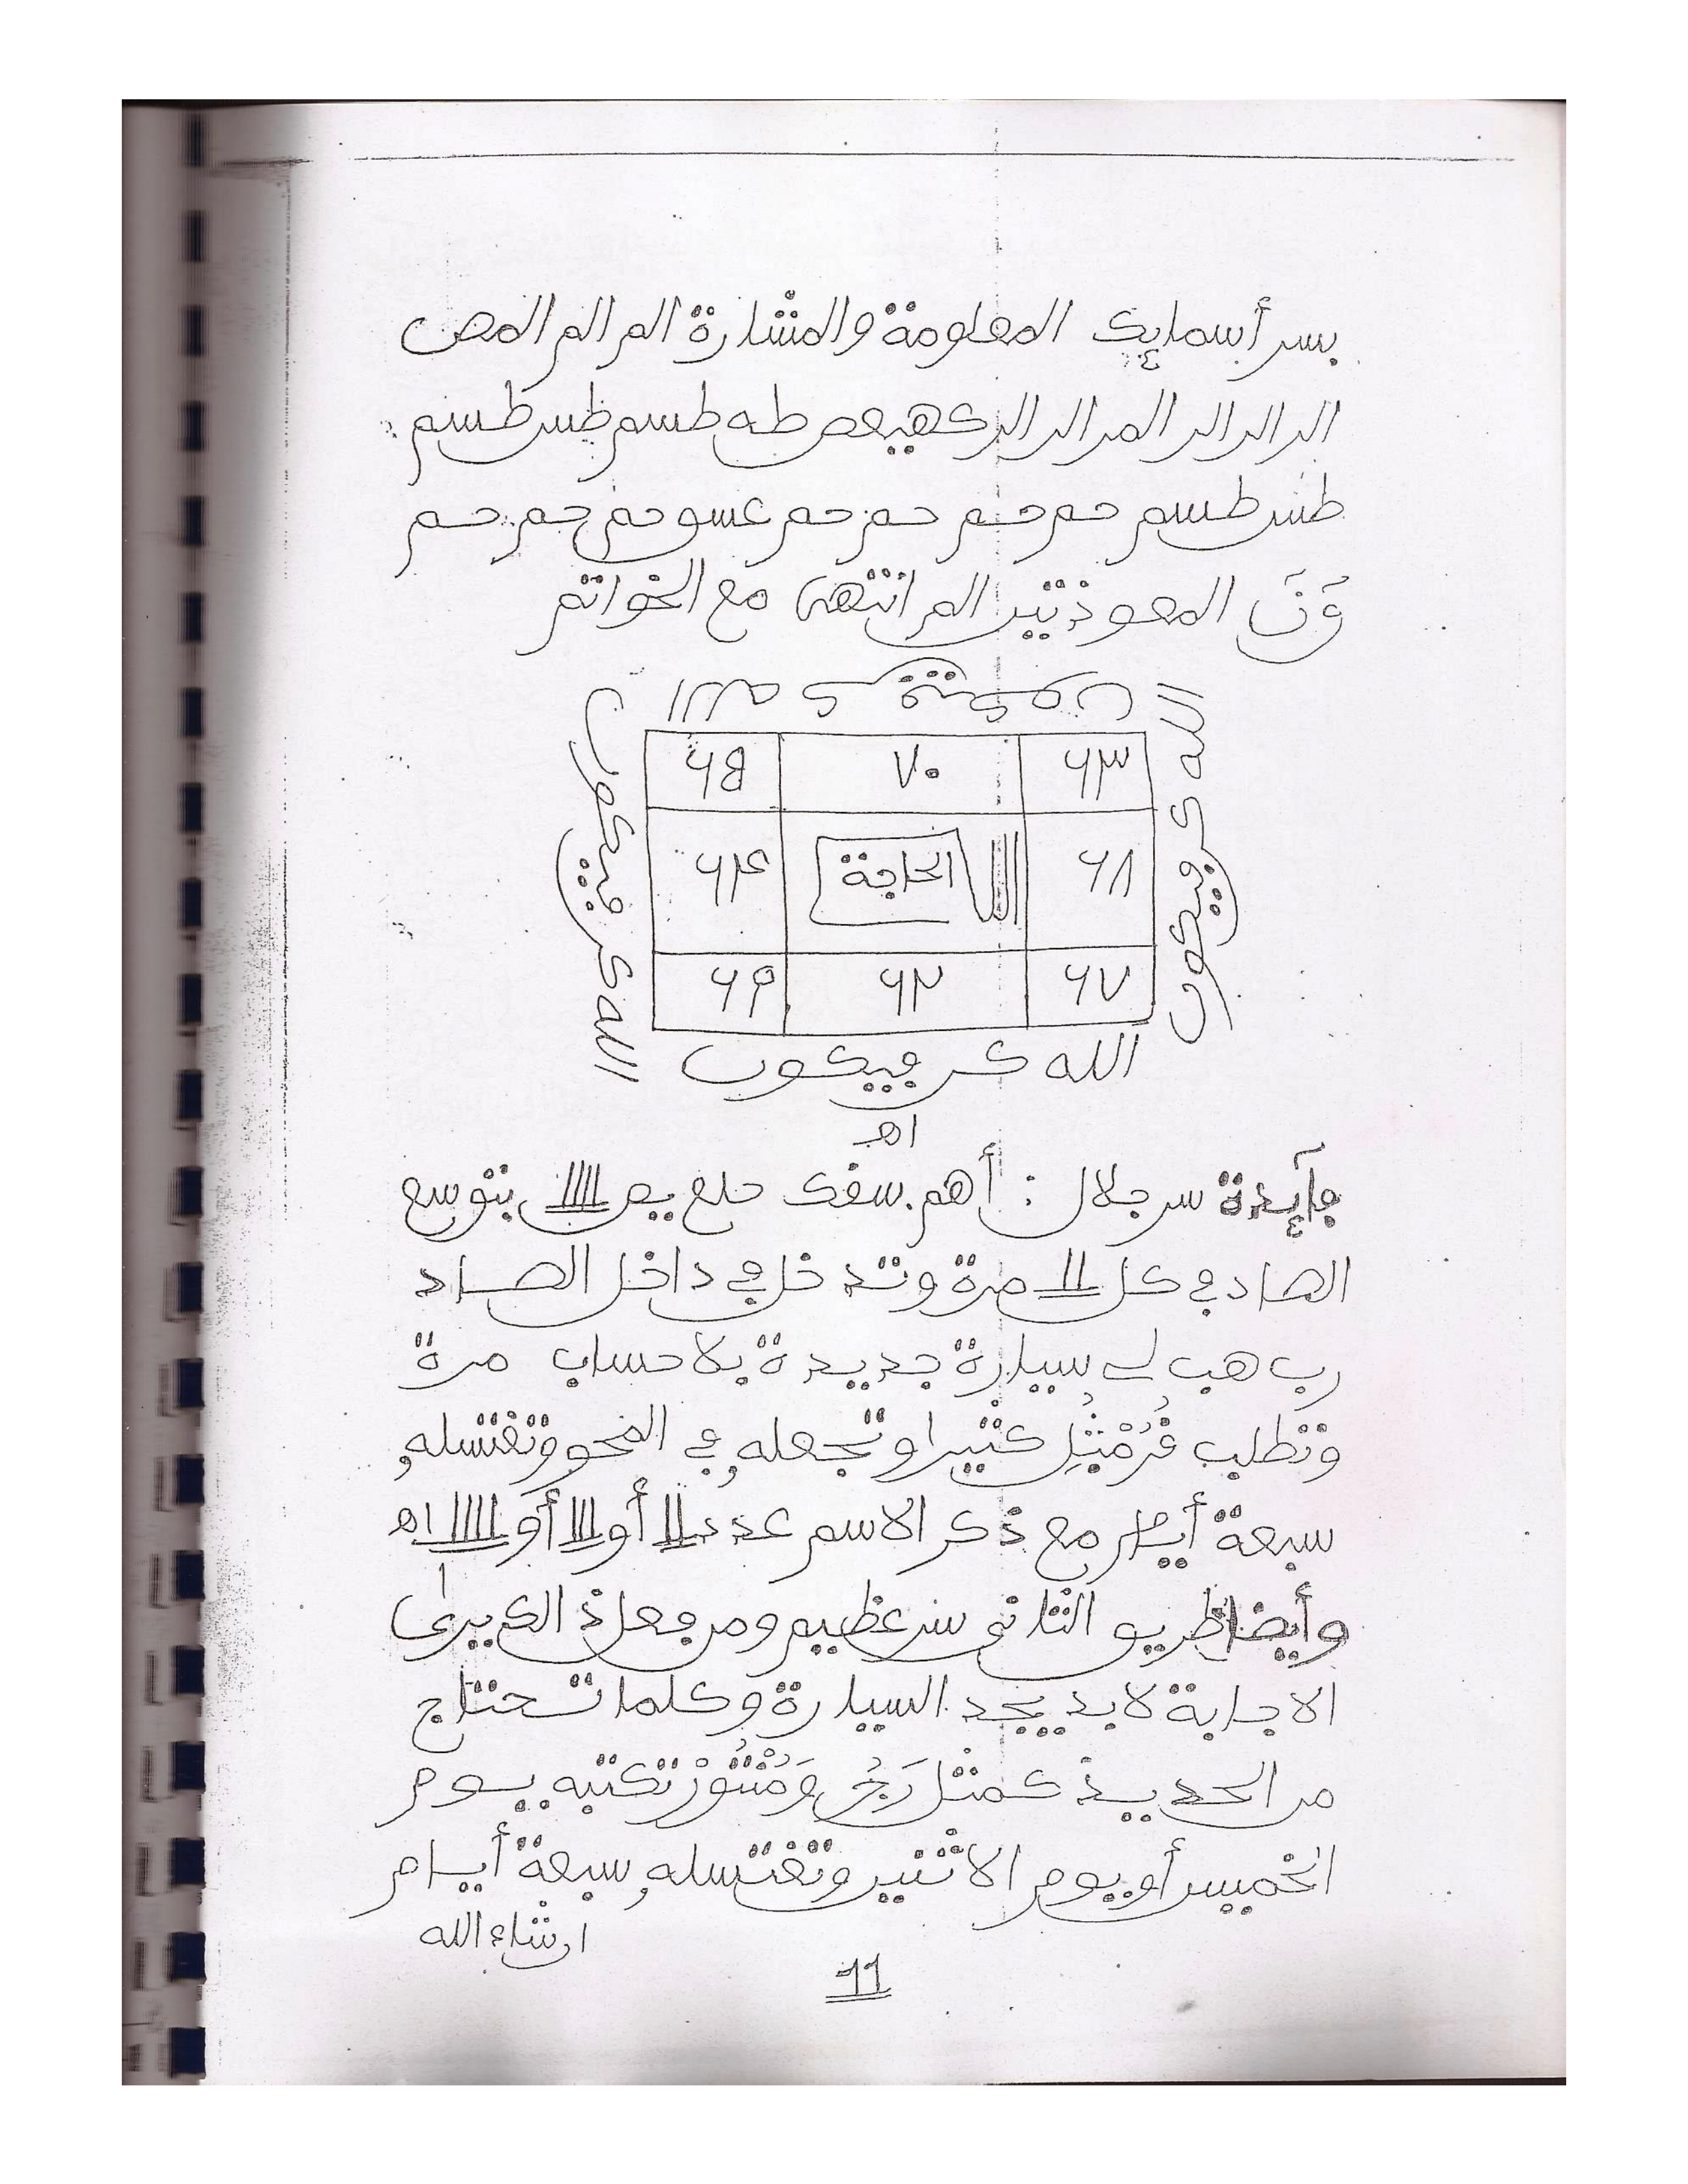 بسر أسمايك المعلومة والمشارة الم الم المص
الر الر الر المر الر الر كهيعص طه طسم طس طسم
طس طسم حم حم حم حم عسق حم حم حم
ق ن المعوذتين الم انتهى مع الخواتم
الله كن فيكون
٦٥ ٧٠ ٦٣
٦٤ الحاجة ٦٨
٦٩ ٦٢ ٦٧
الله كن فيكون
الله كن فيكون
اه
فآيدة سر جلال : أهم سقك حلع يص بتوسع
الصاد في كل مرة وتدخل في داخل الصاد
رب هب لي سيارة جديدة بلا حساب مرة
وتطلب كثيرا وتجعله في وتغتسله
سبعة أيام مع ذكر الاسم عدد أو أو اه
وأيضا طريق الثاني سر عظيم ومن فعل ذالك يرى
الاجابة لا بد يجد السيارة وكلما تحتاج
من الحديد كمثل تكتبه يوم
الخميس أو يوم الاثنين وتغتسله سبعة أيام
ان شاء الله
11